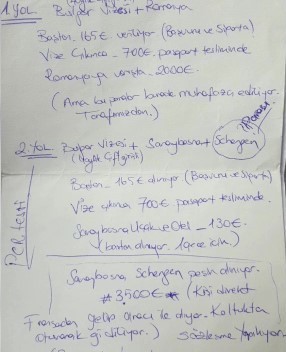 1.YOL Bulgar Vizesi + Romanya
Baştan 165€ veriliyor (Başvuru ve Sigorta)
Vize Çıkınca - 700€, pasaport tesliminde
Romanya'ya varışta - 2000€
(Ama bu paralar burada muhafaza ediliyor.
Tarafımızdan.)
2.YOL Bulgar Vizesi + Saraybosna + Schengen
Baştan 165€ alınıyor (Başvuru ve Sigorta)
Vize çıkınca 700€ pasaport tesliminde.
Saraybosna Uçak ve Otel - 130€.
(baştan alınıyor. 1 gece için.)
Saraybosna Schengen pasaportu alınıyor.
# 3,500€ (Kişi direkt
Fransadan gelip aracı ile alıyor. Koltukta
oturarak gidiliyor.) Sözleşme Yapılıyor.